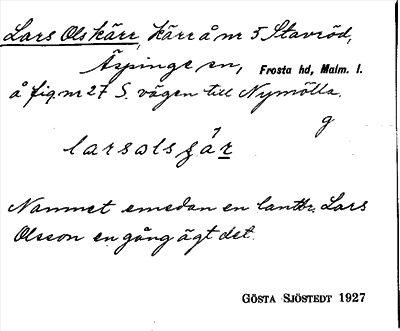 Lars Olskärr, Kärr å nr 5 Stavröd,
Äspinge sn, Frosta hd, Malm. l.
å fig. nr 27 S. vägen till Nymölla.
g
larsols
Namnet emedan en lantbr. Lars
Olsson en gång ägt det.
GÖSTA SJÖSTEDT 1927